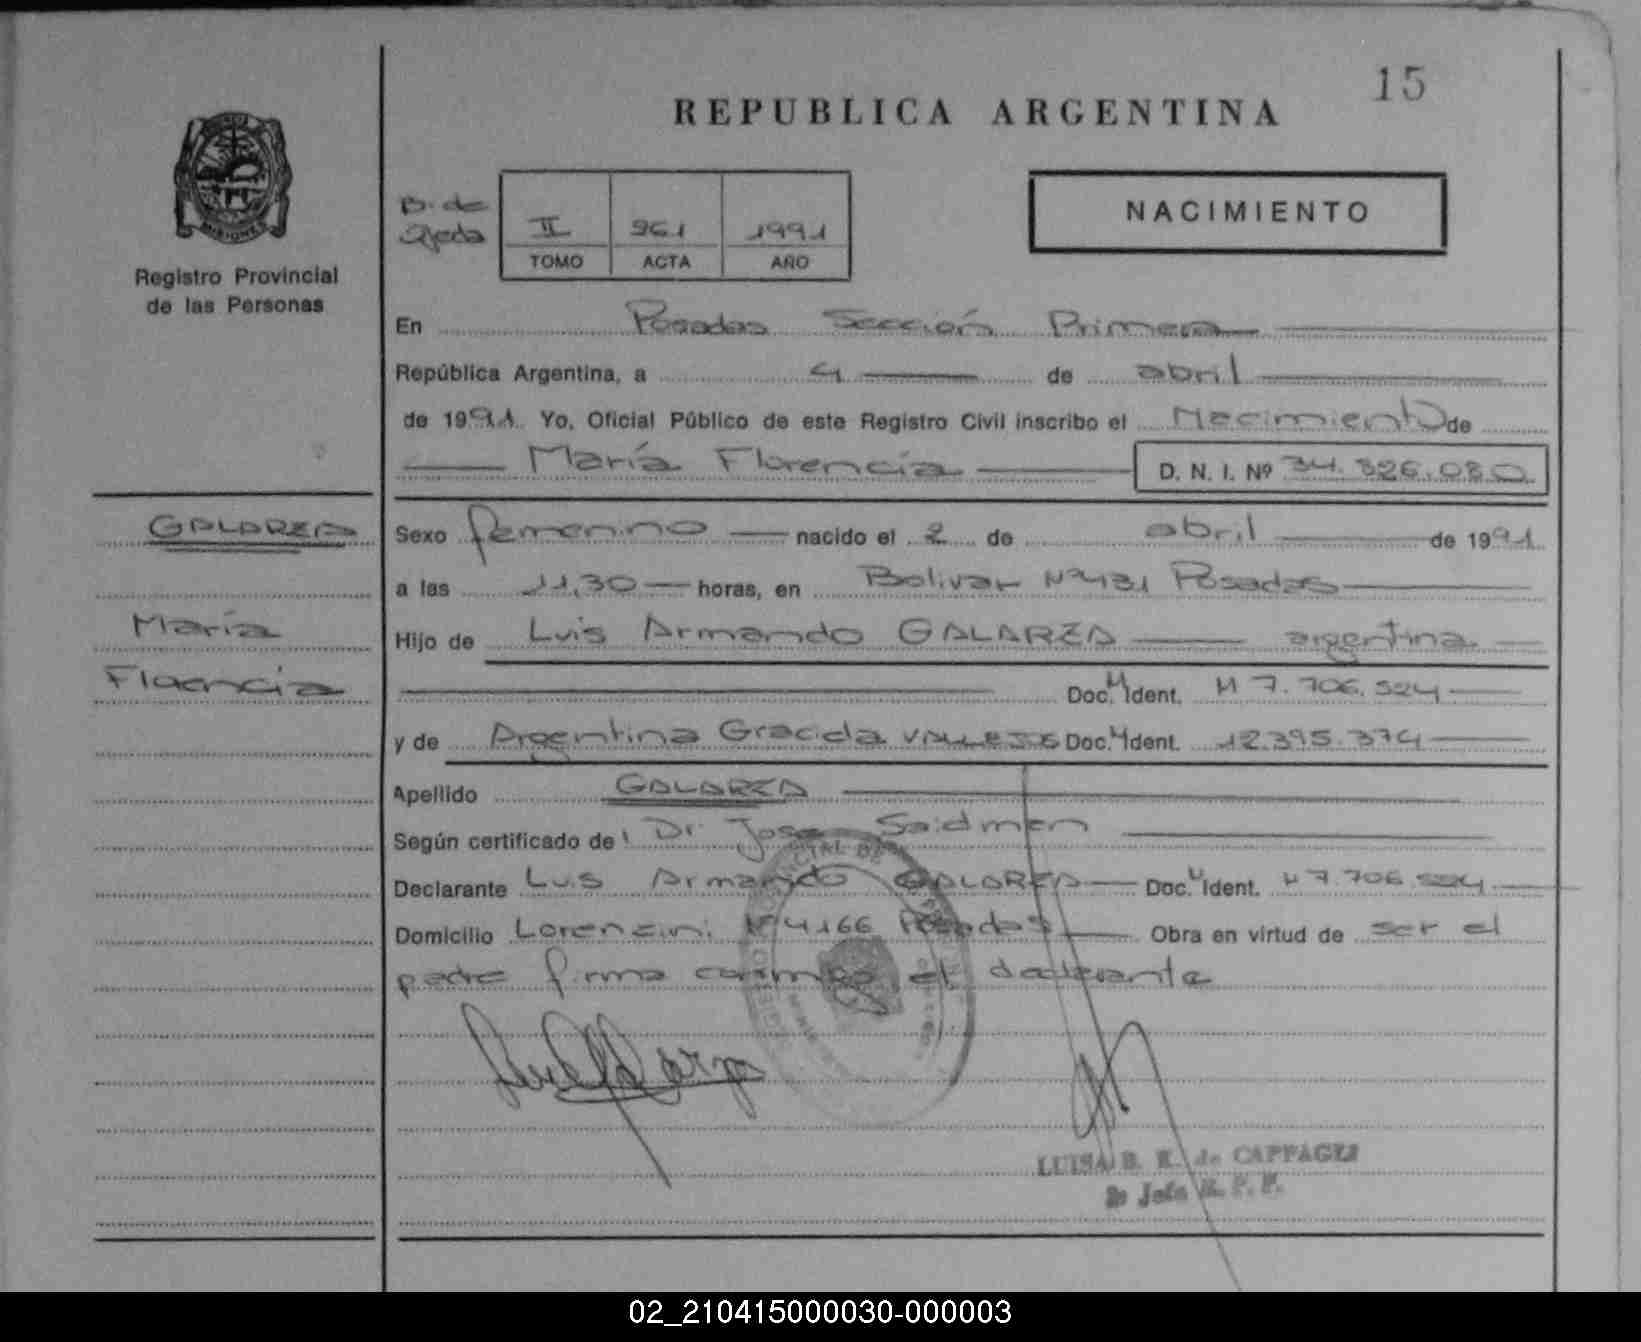 15
REPUBLICA ARGENTINA
MISIONES
Registro Provincial
de las Personas
B. de
II 961 1991
TOMO ACTA AÑO
NACIMIENTO
En Posadas Sección Primera
República Argentina, a 4 de abril
de 1991. Yo, Oficial Público de este Registro Civil inscribo el Nacimiento de
María Florencia D. N. I. Nº 34.326.080
GALARZA
María
Florencia
Sexo femenino nacido el 2 de abril de 1991
a las 11,30 horas, en Bolivar Nº 431 Posadas
Hijo de Luis Armando GALARZA argentina
Doc. M Ident. M 7.706.524
y de Argentina Graciela Doc. M Ident. 12.395.374
Apellido GALARZA
Según certificado de Dr. Jose Saidman
Declarante Luis Armando GALARZA Doc. M Ident. M 7.706.524
Domicilio Lorenzini Nº 4166 Posadas Obra en virtud de ser el
padre firma conmigo el declarante
LUISA B. K. de CAPPAGLI
2º Jefe R. P. P.
02_210415000030-000003